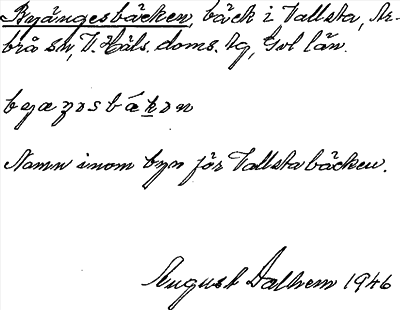 Byängesbäcken, bäck i Vallsta, Ar-
brå sn, V. Häls. doms. tg, Gvl län.
Namn inom byn för Vallstabäcken.
August Dalhem 1946